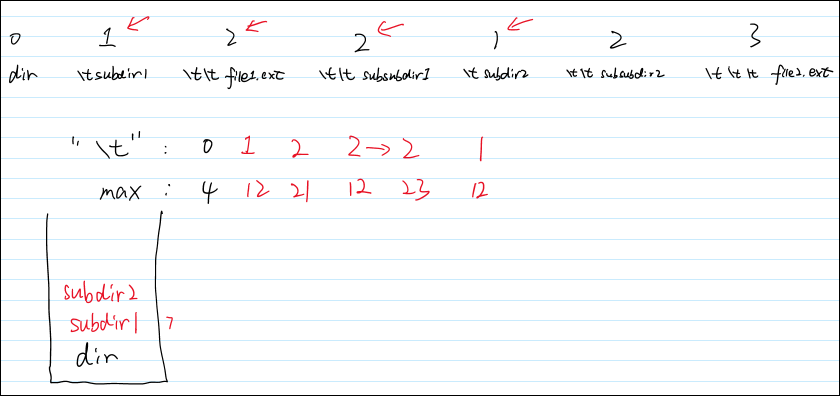 0 1 2 2 1 2 3
dir \tsubdir1 \t\t file1.ext \t\t subsubdir1 \t subdir2 \t\t subsubdir2 \t \t \t file2.ext
"\t" : 0 1 2 2 → 2 1
max : 4 12 21 12 23 12
subdir2
subdir1 7
dir